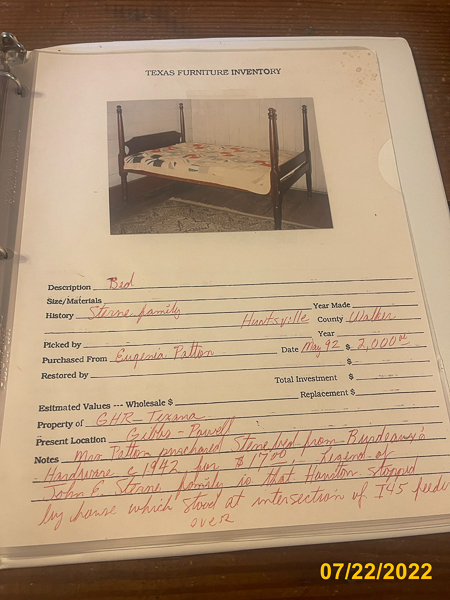 TEXAS FURNITURE INVENTORY
Description Bed
Size/Materials
History Sterne family Year Made
Huntsville County Walker
Picked by Year
Purchased From Eugenia Patton Date May 92 $ 2,000.00
Restored by $
Total Investment $
Esitmated Values --- Wholesale $ Replacement $
Property of GHR - Texana
Present Location Gibbs - Powell
Notes Mrs Patton purchased Sterne bed from
Hardware c 1942 for $17.00. Legend of
John E. Sterne family is that Houston stopped
by house which stood at intersection of I45 feeder
over
07/22/2022